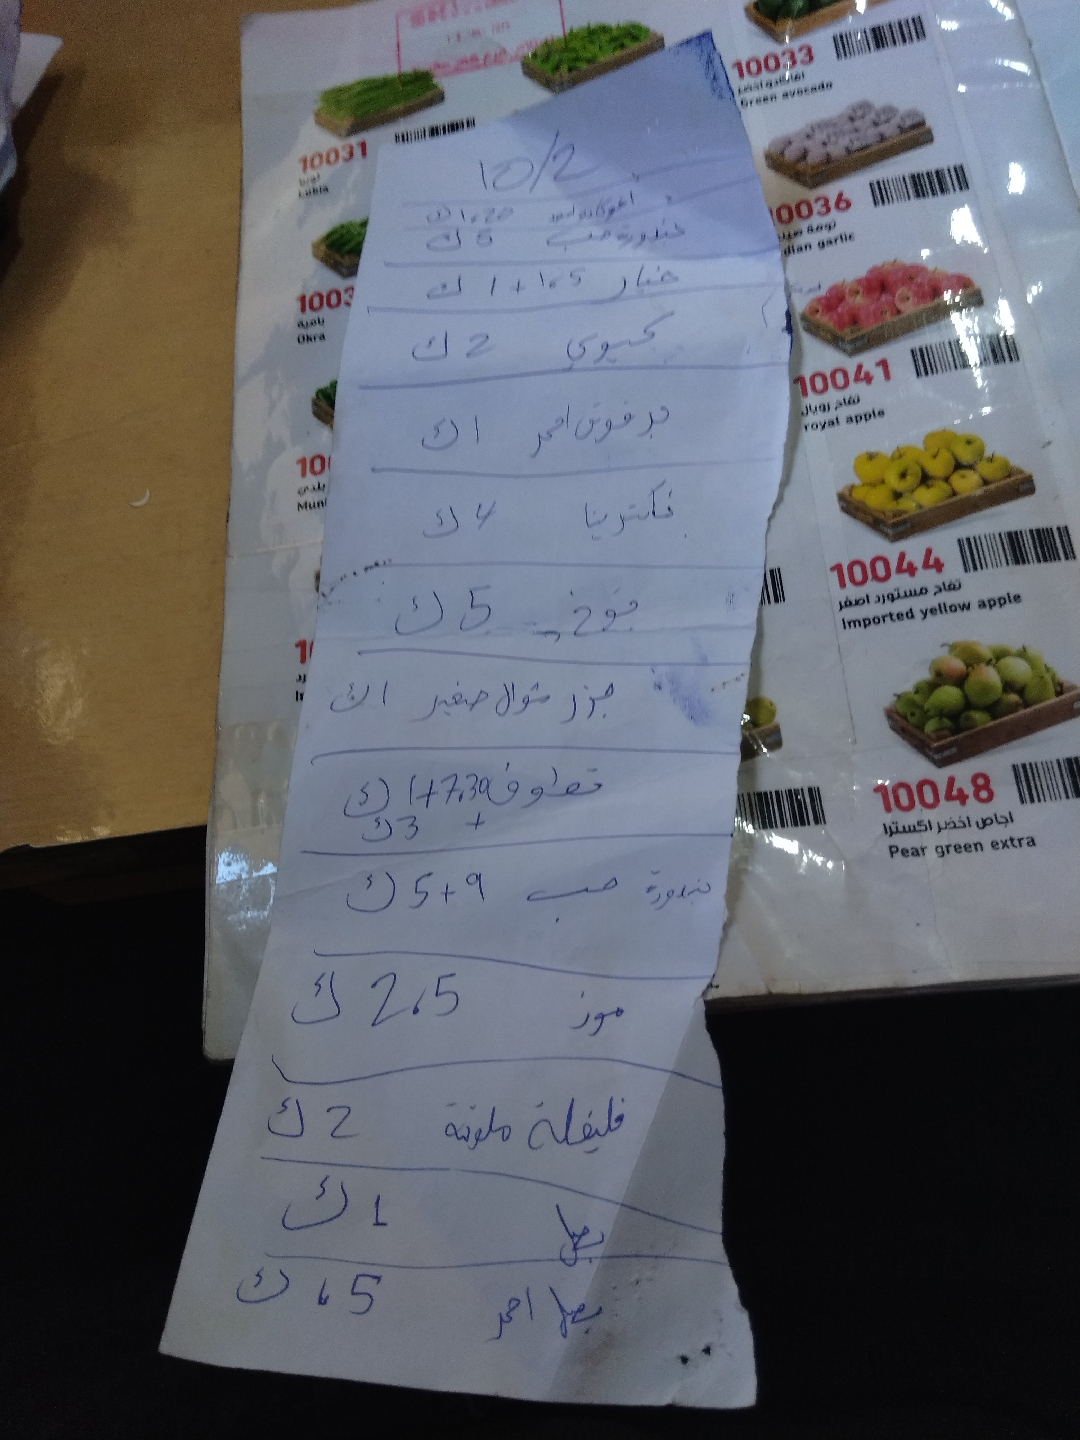 10/2
1,20 ك
بندورة حب 5 ك
خيار 1,5 + 1 ك
كيوي 2 ك
احمر 1 ك
نكترينا 4 ك
خوخ 5 ك
جزر شوال صغير 1 ك
7,30+1 ك
+ 3 ك
بندورة حب 9+5 ك
موز 2,5 ك
فليفلة ملونة 2 ك
بصل 1 ك
بصل احمر ,5 ك
10031
لوبيا
Lubia
1003
بامية
Okra
10
بلدي
Mun
10033
Green avocado
0036
dian garlic
10041
تفاح رويال
royal apple
10044
تفاح مستورد اصفر
Imported yellow apple
10048
اجاص اخضر اكسترا
Pear green extra